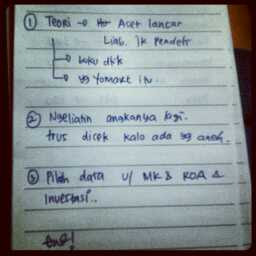 ① Teori → Aset lancar
Liab. jk pendek
→ buku dkk
→ yg Yomart itu
② Ngeliatin angkanya lagi.
trus dicek kalo ada yg aneh.
③ Pilih data u/ MK & ROA &
Investasi..